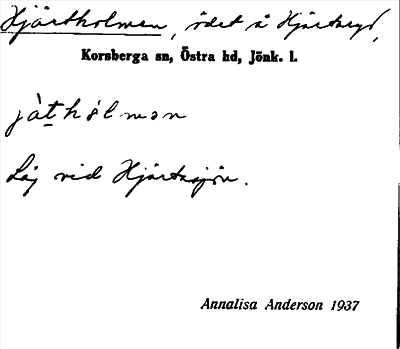 Hjärtholmen, ödet å Hjärtaryd,
Korsberga sn, Östra hd, Jönk. l.
jàt̠hòlmən
Låg vid Hjärtasjön.
Annalisa Anderson 1937